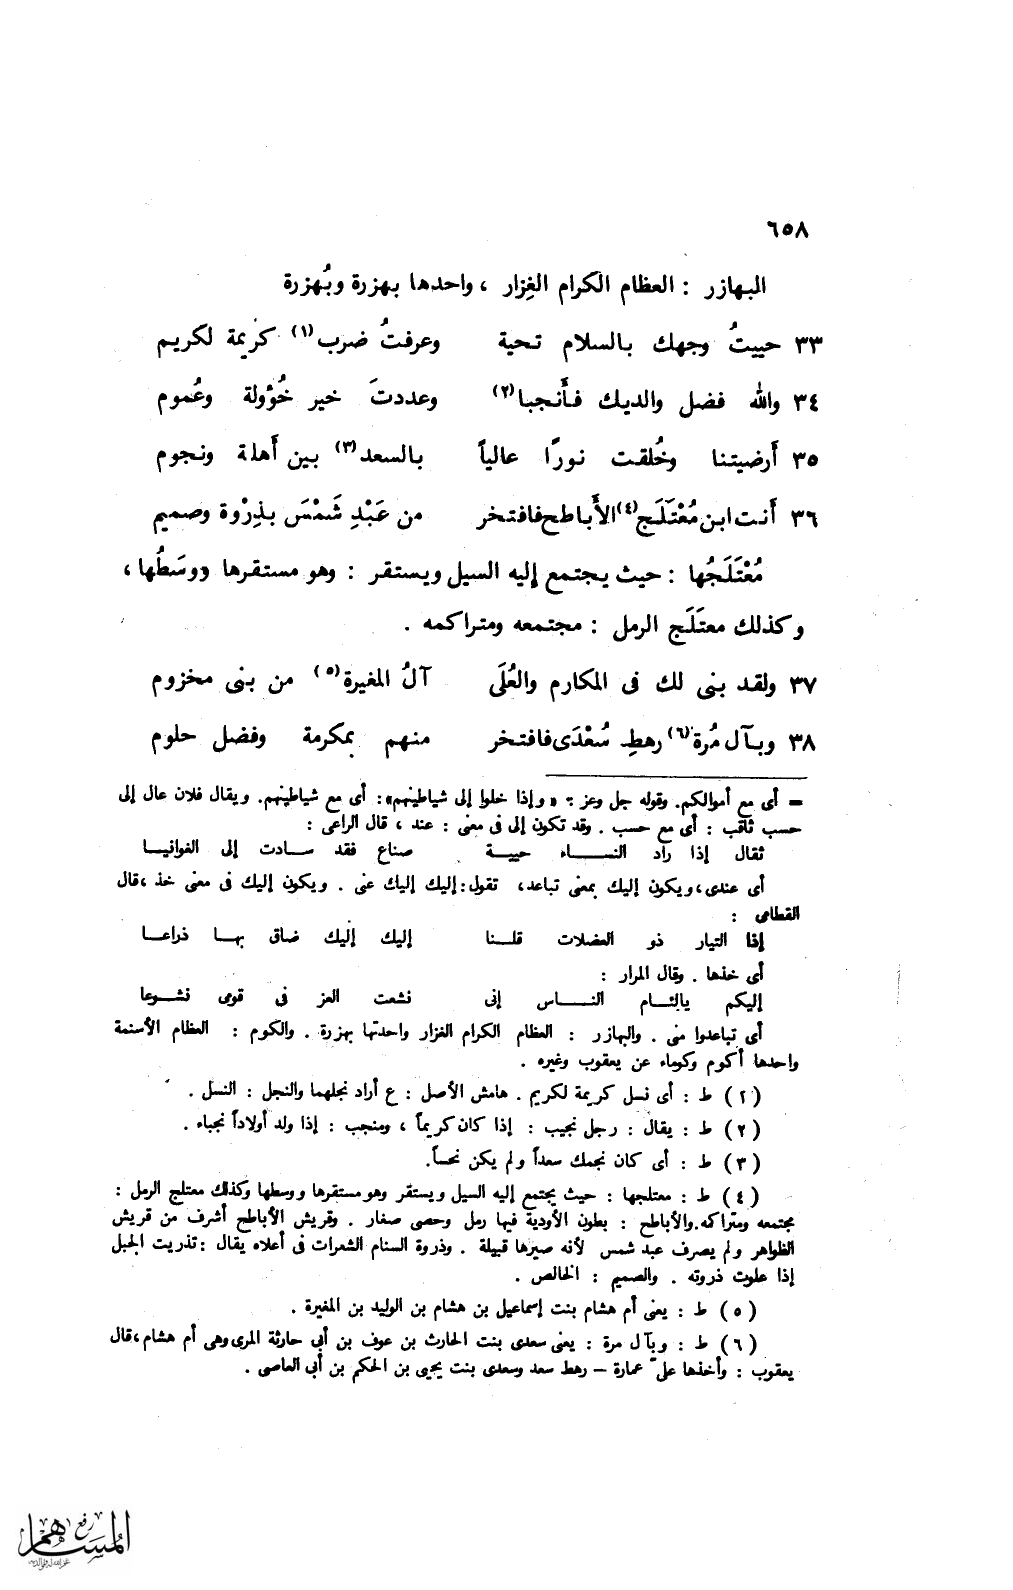 ٦٥٨
البهازر : العظام الكرام الغِزار ، واحدها بهزرة وبُهزرة
٣٣ حييتُ وجهك بالسلام تحية وعرفتُ ضرب(١) كريمة لكريم
٣٤ والله فضل والديك فأَنجبا(٢) وعددتَ خير خُؤولة وعُموم
٣٥ أَرضيتنا وخُلقت نورًا عالياً بالسعد(٣) بين أَهلة ونجوم
٣٦ أَنت ابن مُعْتَلَج(٤) الأَباطح فافتخر من عَبْدِ شَمْسَ بذِرْوة وصميم
مُعْتَلَجُها : حيث يجتمع إليه السيل ويستقر : وهو مستقرها «وسَطُها ،
وكذلك معتَلَج الرمل : مجتمعه ومتراكمه .
٣٧ ولقد بنى لك فى المكارم والعُلَى آلُ المغيرة(٥) من بنى مخزوم
٣٨ وبآل مُرة(٦) رهطِ سُعْدَى فافتخر منهم بمكرمة وفضل حلوم
= أى مع أموالكم. وقوله جل وعز : «وإذا خلوا إلى شياطينهم»: أى مع شياطينهم. ويقال فلان عال إلى
حسب ثاقب : أى مع حسب . وقد تكون إلى فى معنى : عند ، قال الراعى :
ثقال إذا راد النساء حيية صناع فقد سادت إلى الغوانيا
أى عندى، ويكون إليك بمعنى تباعد، تقول: إليك إليك عنى . ويكون إليك فى معنى خذ ، قال
القطامى :
إذا التيار ذو العضلات قلنا إليك إليك ضاق بها ذراعا
أى خذها . وقال المرار :
إليكم يالئام الناس إنى نشعت العز فى قومى نشوعا
أى تباعدوا منى . والبهازر : العظام الكرام الغزار واحدتها بهزرة . والكوم : العظام الأسنمة
واحدها أكوم وكوماء عن يعقوب وغيره .
(١) ط : أى نسل كريمة لكريم . هامش الأصل : ع أراد نجلهما والنجل : النسل .
(٢) ط : يقال : رجل نجيب : إذا كان كريماً ، ومنجب : إذا ولد أولاداً نجباء .
(٣) ط : أى كان نجمك سعداً ولم يكن نحساً.
(٤) ط : معتلجها : حيث يجتمع إليه السيل ويستقر وهو مستقرها ووسطها وكذلك معتلج الرمل :
مجتمعه ومتراكه. والأباطح : بطون الأودية فيها رمل وحصى صغار . وقريش الأباطح أشرف من قريش
الظواهر ولم يصرف عبد شمس لأنه صيرها قبيلة . وذروة السنام الشعرات فى أعلاه يقال : تذريت الجبل
إذا علوت ذروته . والصميم : الخالص .
(٥) ط : يعنى أم هشام بنت إسماعيل بن هشام بن الوليد بن المغيرة .
(٦) ط : وبآل مرة : يعنى سعدى بنت الحارث بن عوف بن أبى حارثة المرى وهى أم هشام، قال
يعقوب : وأخذها علىّ عمارة – رهط سعد وسعدى بنت يحيى بن الحكم بن أبى العاصى .
رفع
المساهم